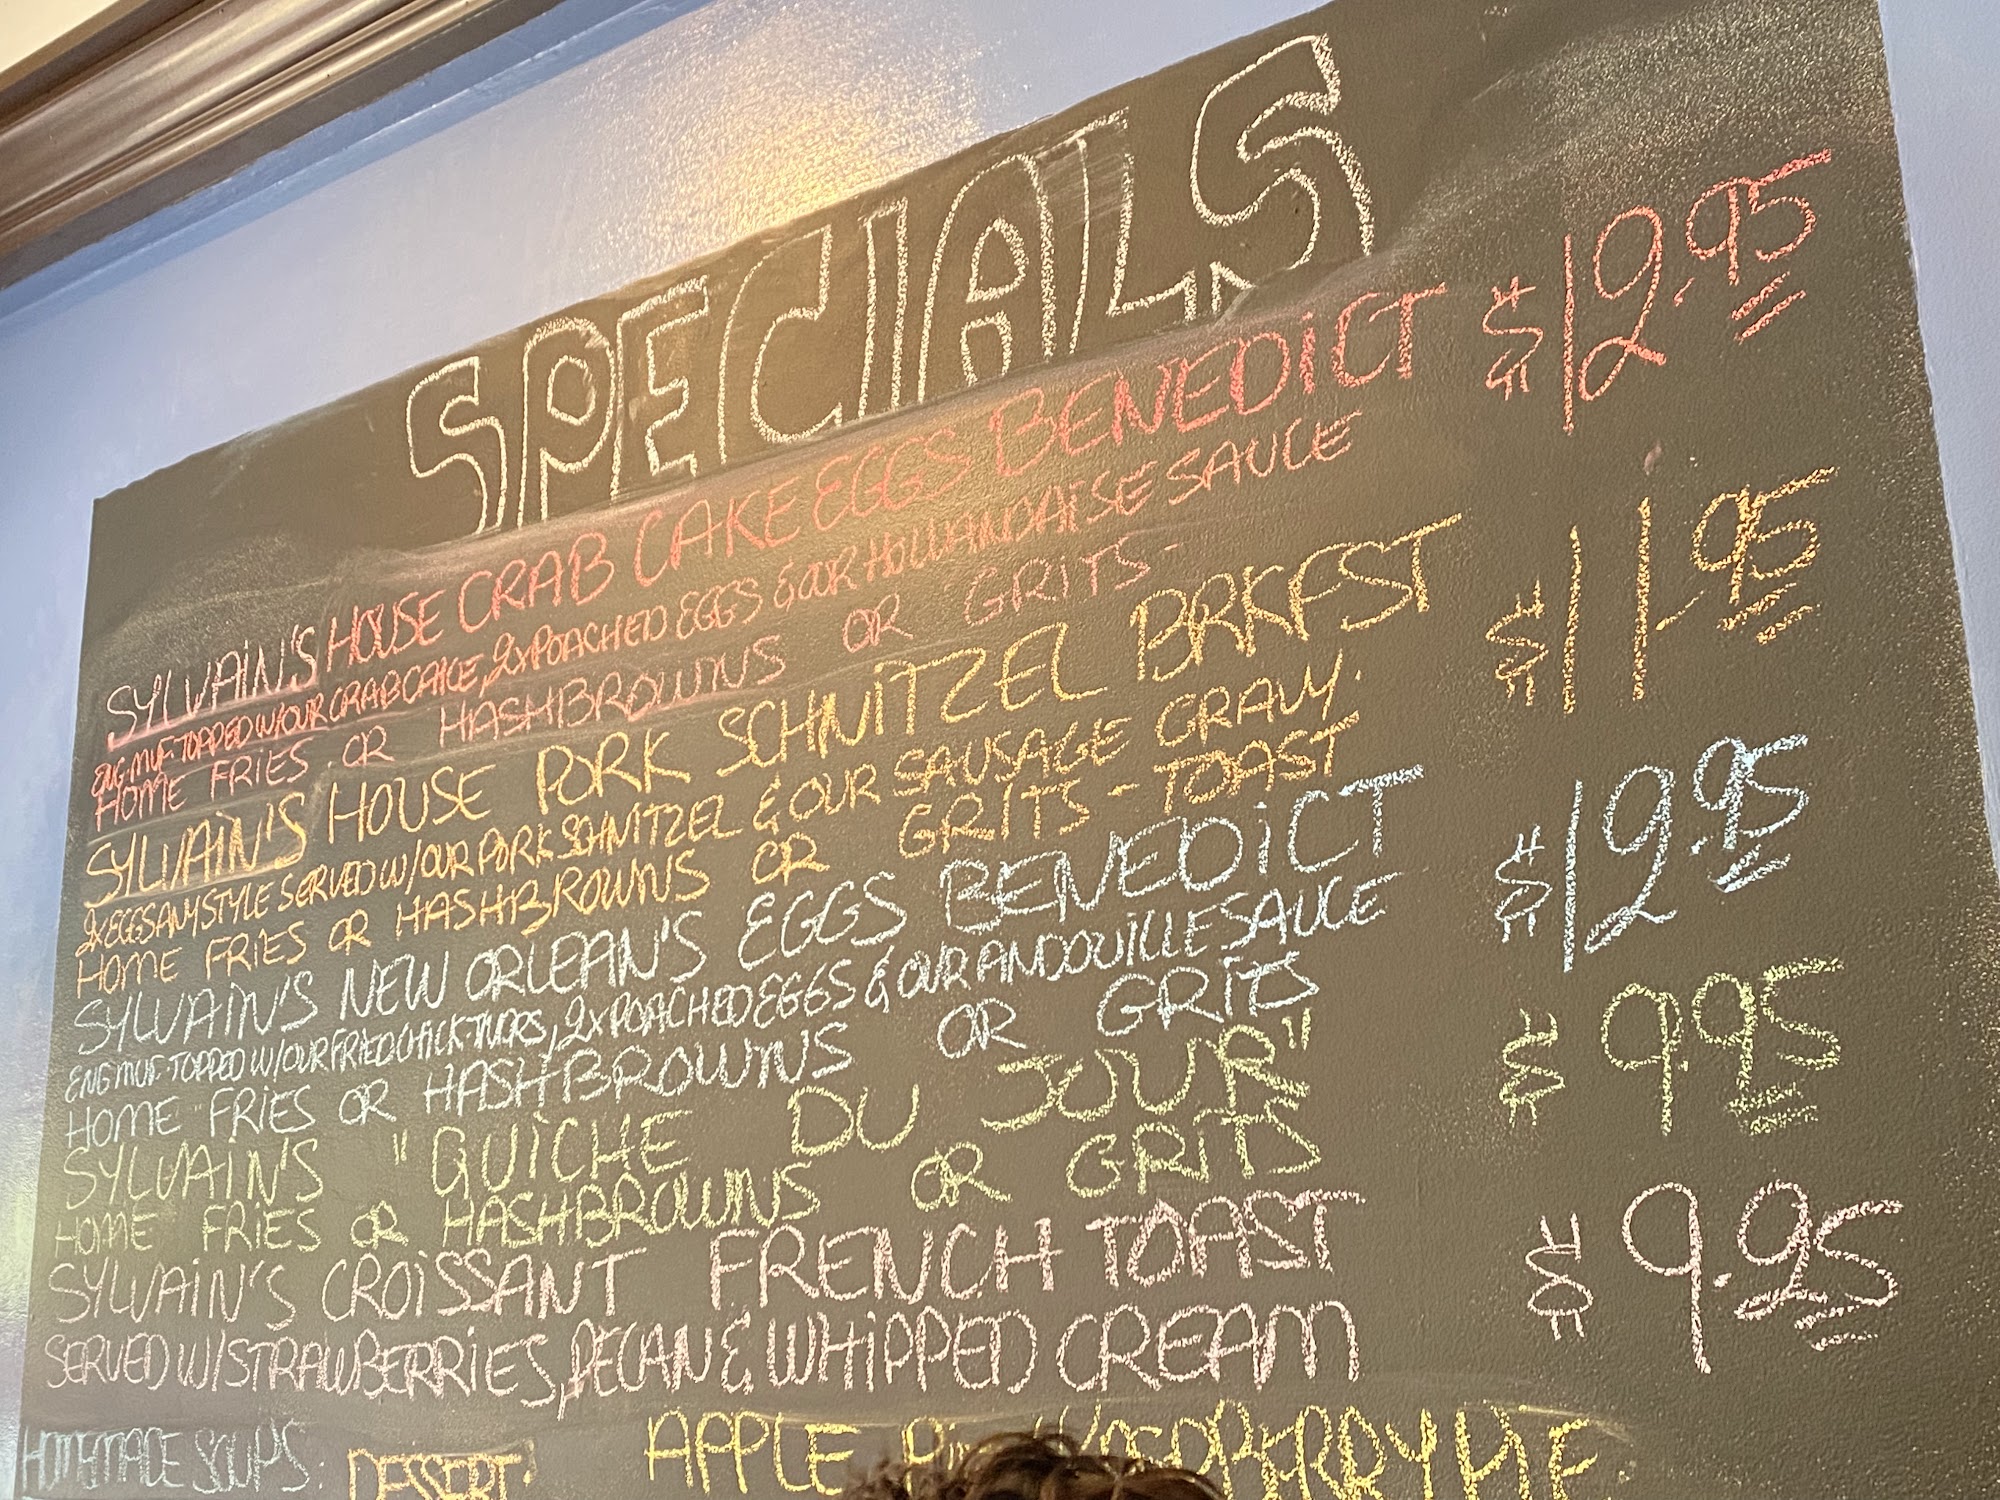 SPECIALS
SYLVAIN'S HOUSE CRAB CAKE EGGS BENEDICT $12.95
ENG-MUF-TOPPED W/OUR CRABCAKE, 2XPOACHED EGGS & OUR HOLLANDAISE SAUCE
HOME FRIES OR HASHBROWNS OR GRITS-
SYLVAIN'S HOUSE PORK SCHNITZEL BRKFST $11.95
2XEGGS ANY STYLE SERVED W/OUR PORK SCHNITZEL & OUR SAUSAGE GRAVY.
HOME FRIES OR HASHBROWNS OR GRITS - TOAST
SYLVAIN'S NEW ORLEAN'S EGGS BENEDICT $12.95
ENG MUF-TOPPED W/OUR FRIED CHICK-TNDRS, 2XPOACHED EGGS & OUR ANDOUILLE SAUCE
HOME FRIES OR HASHBROWNS OR GRITS
SYLVAIN'S "QUICHE DU JOUR" $9.95
HOME FRIES OR HASHBROWNS OR GRITS
SYLVAIN'S CROISSANT FRENCH TOAST $9.95
SERVED W/STRAWBERRIES, PECAN & WHIPPED CREAM
HOMEMADE SOUPS: DESSERT: APPLE PIE RASPBERRY PIE